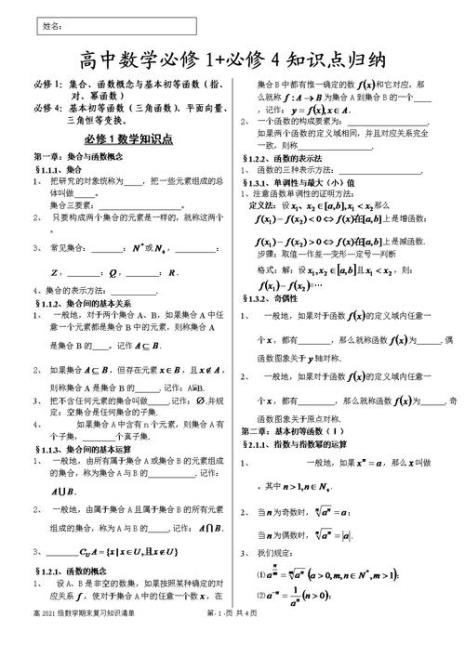 姓名：
高中数学必修1+必修4知识点归纳
必修1：集合、函数概念与基本初等函数（指、
对、幂函数）
必修4：基本初等函数（三角函数）、平面向量、
三角恒等变换。
必修1数学知识点
第一章：集合与函数概念
§1.1.1、集合
1、 把研究的对象统称为____，把一些元素组成的总
体叫做____。
集合三要素：____________。
2、 只要构成两个集合的元素是一样的，就称这两个
。
3、 常见集合：______：N*或N₊，______：
Z，______：Q，______：R.
4、集合的表示方法：________.
§1.1.2、集合间的基本关系
1、 一般地，对于两个集合A、B，如果集合A中任
意一个元素都是集合B中的元素，则称集合A
是集合B的____。记作A⊆B.
2、 如果集合A⊆B，但存在元素x∈B，且x∉A，
则称集合A是集合B的____.记作：A⫋B.
3、 把不含任何元素的集合叫做____.记作：∅.并规
定：空集合是任何集合的子集.
4、 如果集合A中含有n个元素，则集合A有
个子集，______个真子集.
§1.1.3、集合间的基本运算
1、 一般地，由所有属于集合A或集合B的元素组成
的集合，称为集合A与B的______.记作：
A∪B.
2、 一般地，由属于集合A且属于集合B的所有元素
组成的集合，称为A与B的____.记作：A∩B.
3、______C_U A={x|x∈U,且x∉U}
§1.2.1、函数的概念
1、 设A、B是非空的数集，如果按照某种确定的对
应关系f，使对于集合A中的任意一个数x，在
集合B中都有惟一确定的数f(x)和它对应，那
么就称f:A→B为集合A到集合B的一个____
，记作：y=f(x),x∈A.
2、 一个函数的构成要素为：____________.
如果两个函数的定义域相同，并且对应关系完全
一致，则称____________.
§1.2.2、函数的表示法
1、 函数的三种表示方法：____________.
§1.3.1、单调性与最大（小）值
1、注意函数单调性的证明方法：
定义法：设x₁、x₂∈[a,b],x₁<x₂那么
f(x₁)-f(x₂)<0⇔f(x)在[a,b]上是增函数；
f(x₁)-f(x₂)>0⇔f(x)在[a,b]上是减函数.
步骤：取值—作差—变形—定号—判断
格式：解：设x₁,x₂∈[a,b]且x₁<x₂，则：
f(x₁)-f(x₂)=…
§1.3.2、奇偶性
1、 一般地，如果对于函数f(x)的定义域内任意一
个x，都有______，那么就称函数f(x)为____.偶
函数图象关于y轴对称.
2、 一般地，如果对于函数f(x)的定义域内任意一
个x，都有______，那么就称函数f(x)为____.奇
函数图象关于原点对称.
第二章：基本初等函数（Ⅰ）
§2.1.1、指数与指数幂的运算
1、 一般地，如果xⁿ=a，那么x叫做
。其中n>1,n∈N₊.
2、 当n为奇数时，ⁿ√aⁿ=a；
当n为偶数时，ⁿ√aⁿ=|a|.
3、 我们规定：
⑴a^(n/m)=ᵐ√aⁿ (a>0,m,n∈N*,m>1)；
⑵a⁻ⁿ=1/aⁿ(n>0)；
高2021级数学期末复习知识清单 第1页 共4页